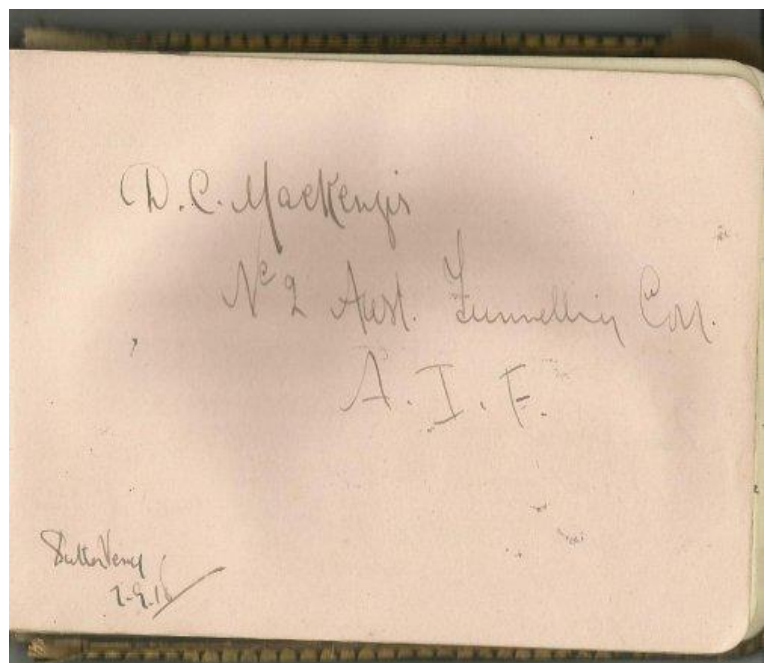 D. C. MacKenzie
No 2 Aust. Tunnelling Coy.
A. I. F.
Sutton Veny